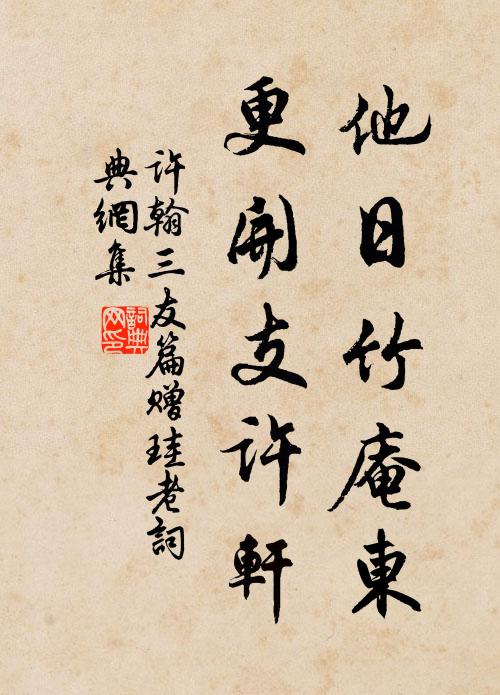 他日竹庵東
更開支許軒
許翰三友篇贈珪老詞
典網集
詞典網印